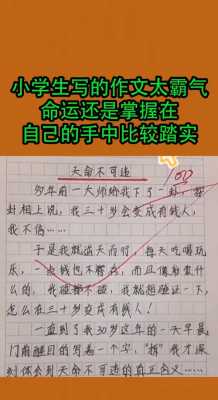 小学生写的作文太霸气
命运还是掌握在
自己的手中比较踏实
100
天命不可违
今年前一大师给我下了一卦,挂
卦相上说,我三十岁会变成有钱人,
我不信……
于是我就逆天而行,每天吃喝玩
乐,一点钱也不攒,而且借身贷什
么的,我碰都不碰,我就想验证一下,
怎么在三十岁变成有钱人!
一直到了我30岁这年的一天早晨,
门前醒目的写着一个字,"拆"我才深
刻体会到天命不可违的真正含义……